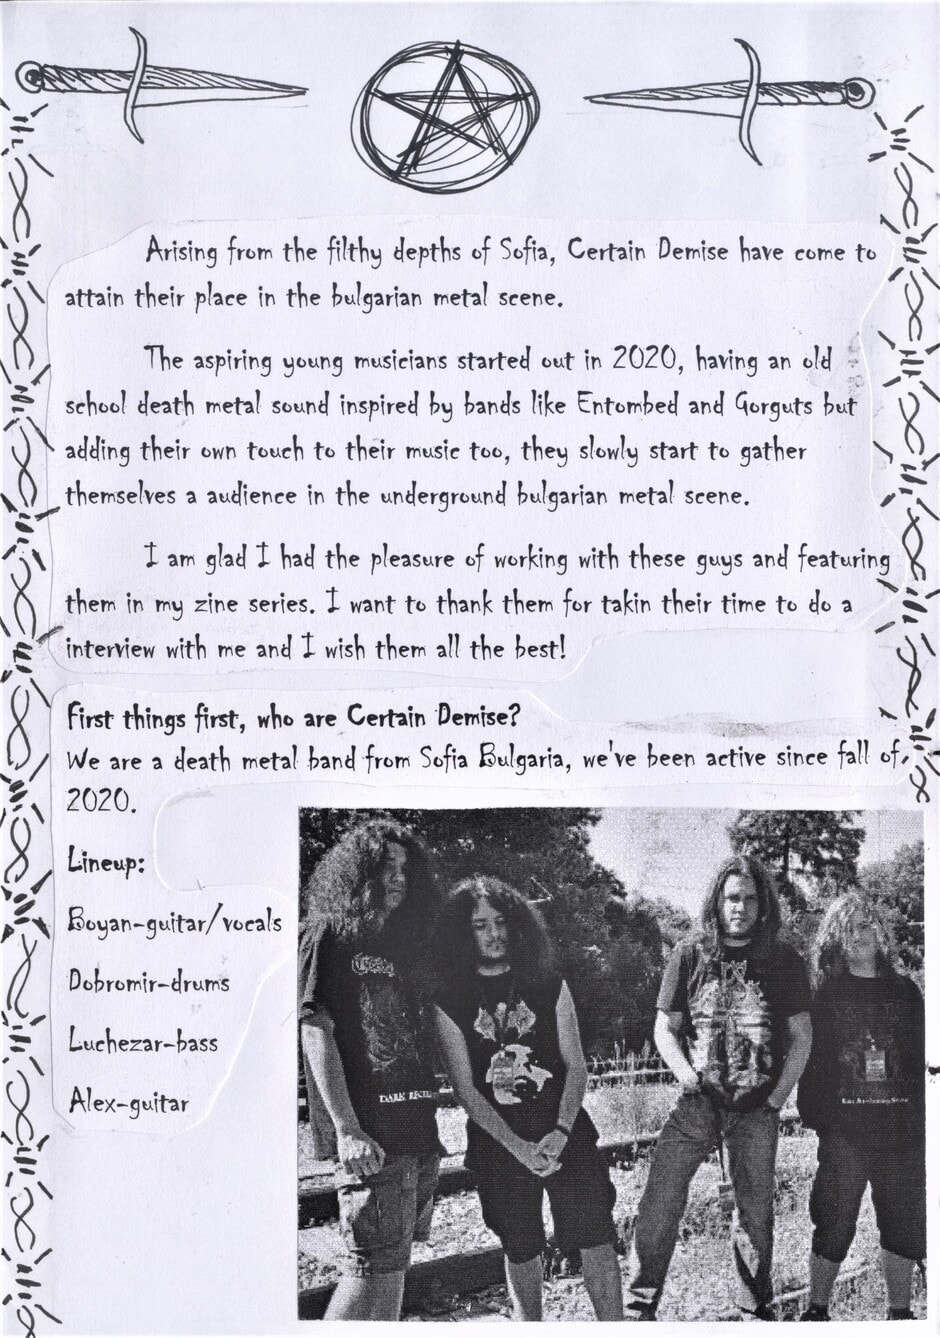 Arising from the filthy depths of Sofia, Certain Demise have come to
attain their place in the bulgarian metal scene.
The aspiring young musicians started out in 2020, having an old
school death metal sound inspired by bands like Entombed and Gorguts but
adding their own touch to their music too, they slowly start to gather
themselves a audience in the underground bulgarian metal scene.
I am glad I had the pleasure of working with these guys and featuring
them in my zine series. I want to thank them for takin their time to do a
interview with me and I wish them all the best!
First things first, who are Certain Demise?
We are a death metal band from Sofia Bulgaria, we've been active since fall of
2020.
Lineup:
Boyan-guitar/vocals
Dobromir-drums
Luchezar-bass
Alex-guitar
DARK